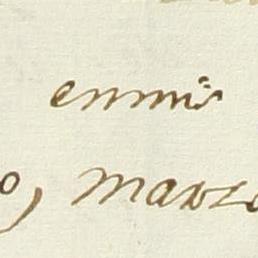 enmis
o, marzo